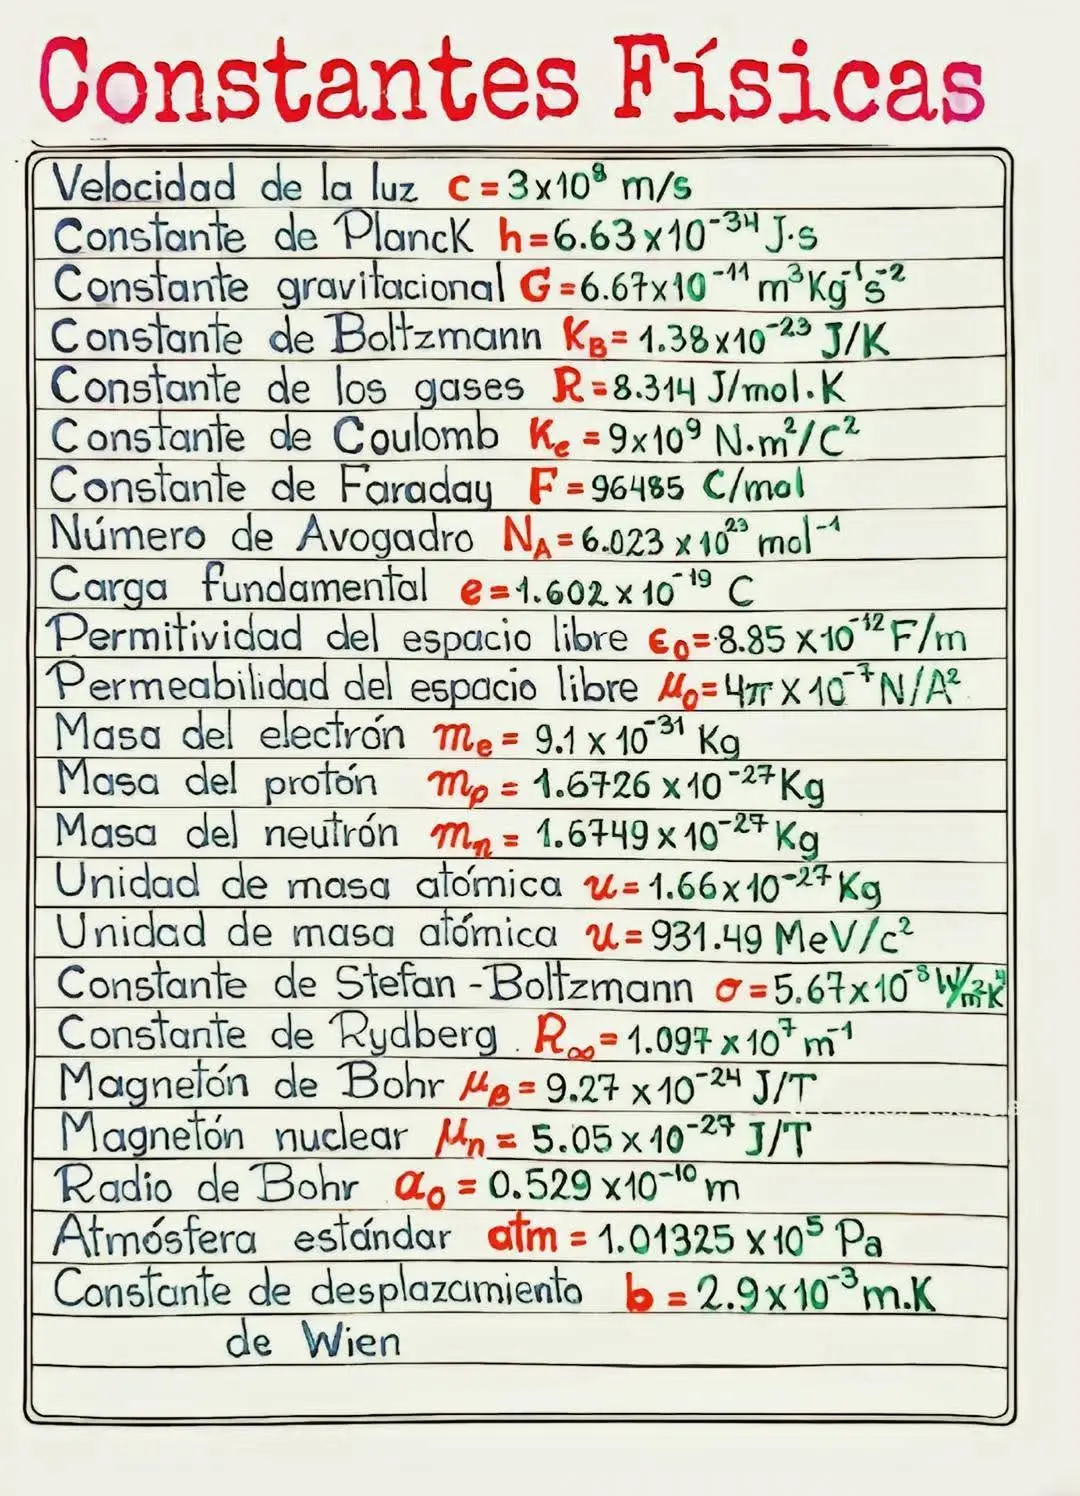 Constantes Físicas
Velocidad de la luz c = 3x10⁸ m/s
Constante de Planck h = 6.63 x 10⁻³⁴ J·s
Constante gravitacional G = 6.67x10⁻¹¹ m³Kg⁻¹s⁻²
Constante de Boltzmann K_B = 1.38 x10⁻²³ J/K
Constante de los gases R = 8.314 J/mol.K
Constante de Coulomb K_e = 9x10⁹ N.m²/C²
Constante de Faraday F = 96485 C/mol
Número de Avogadro N_A = 6.023 x 10²³ mol⁻¹
Carga fundamental e = 1.602 x 10⁻¹⁹ C
Permitividad del espacio libre ϵ₀ = 8.85 x 10⁻¹² F/m
Permeabilidad del espacio libre μ₀ = 4π x 10⁻⁷ N/A²
Masa del electrón m_e = 9.1 x 10⁻³¹ Kg
Masa del protón m_p = 1.6726 x 10⁻²⁷ Kg
Masa del neutrón m_n = 1.6749 x 10⁻²⁷ Kg
Unidad de masa atómica u = 1.66x10⁻²⁷ Kg
Unidad de masa atómica u = 931.49 MeV/c²
Constante de Stefan - Boltzmann σ = 5.67x10⁻⁸ W/m²K⁴
Constante de Rydberg. R_∞ = 1.097 x 10⁷ m⁻¹
Magnetón de Bohr μ_B = 9.27 x 10⁻²⁴ J/T
Magnetón nuclear μ_n = 5.05 x 10⁻²⁷ J/T
Radio de Bohr a₀ = 0.529 x10⁻¹⁰ m
Atmósfera estándar atm = 1.01325 x 10⁵ Pa
Constante de desplazamiento b = 2.9x10⁻³ m.K
de Wien